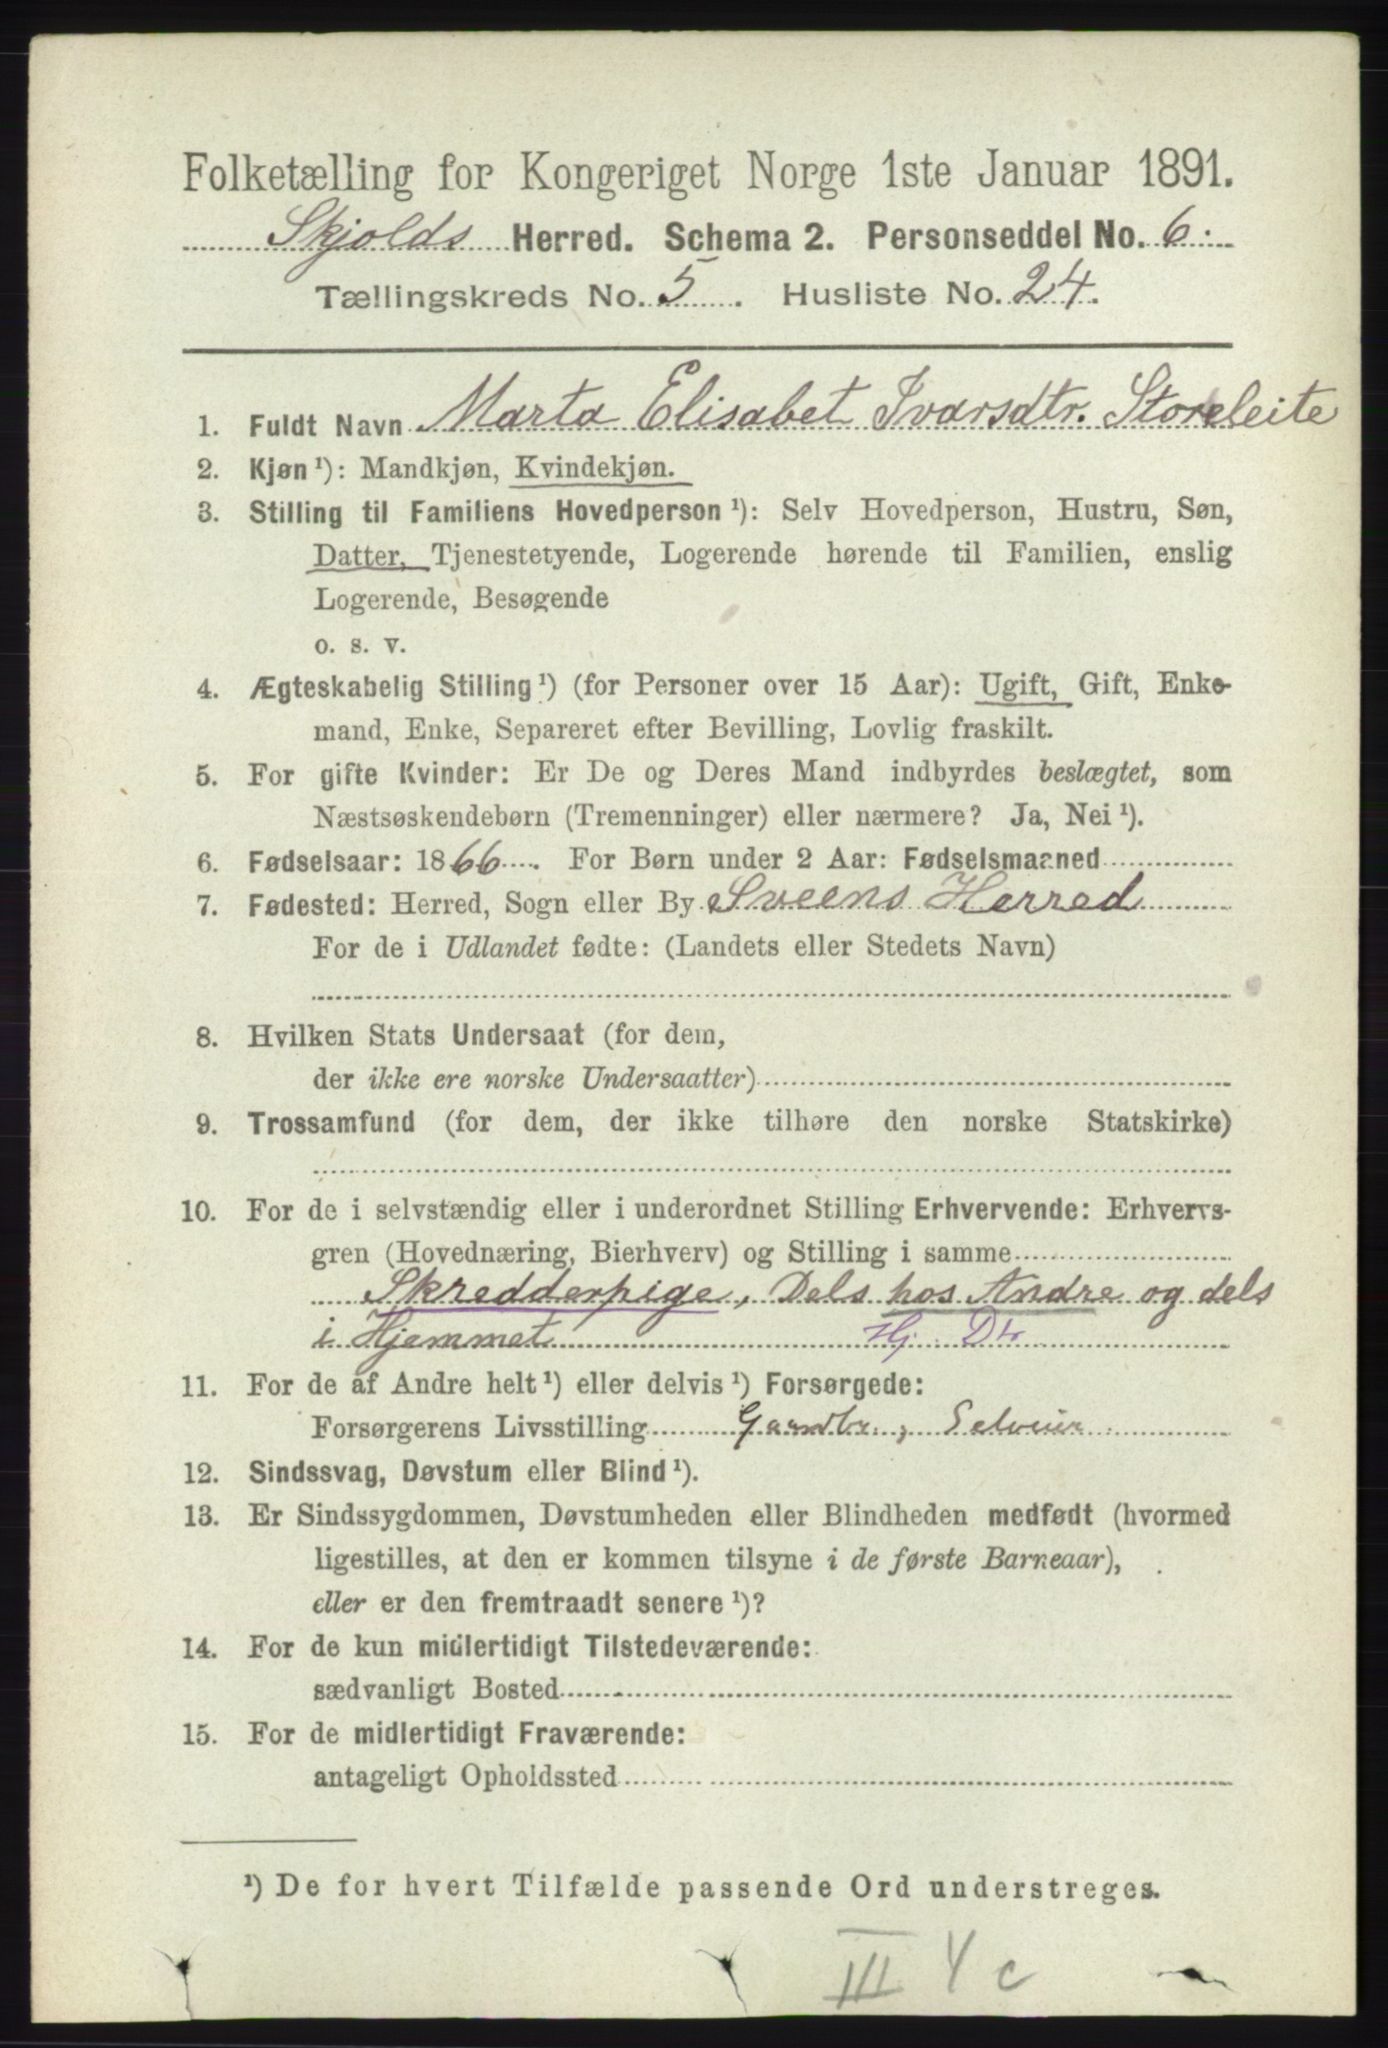 Folketælling for Kongeriget Norge 1ste Januar 1891.
Skjolds Herred. Schema 2. Personseddel No. 6.
Tællingskreds No. 5. Husliste No. 24.
1. Fuldt Navn Marta Elisabet Ivarsdtr. Storeleite
2. Kjøn ¹): Mandkjøn, Kvindekjøn.
3. Stilling til Familiens Hovedperson ¹): Selv Hovedperson, Hustru, Søn,
Datter, Tjenestetyende, Logerende hørende til Familien, enslig
Logerende, Besøgende
o. s. v.
4. Ægteskabelig Stilling ¹) (for Personer over 15 Aar): Ugift, Gift, Enke-
mand, Enke, Separeret efter Bevilling, Lovlig fraskilt.
5. For gifte Kvinder: Er De og Deres Mand indbyrdes beslægtet, som
Næstsøskendebørn (Tremenninger) eller nærmere? Ja, Nei ¹).
6. Fødselsaar: 1866. For Børn under 2 Aar: Fødselsmaaned
7. Fødested: Herred, Sogn eller By Sveens Herred
For de i Udlandet fødte: (Landets eller Stedets Navn)
8. Hvilken Stats Undersaat (for dem,
der ikke ere norske Undersaatter)
9. Trossamfund (for dem, der ikke tilhøre den norske Statskirke)
10. For de i selvstændig eller i underordnet Stilling Erhvervende: Erhvervs-
gren (Hovednæring, Bierhverv) og Stilling i samme
Skredderpige, Dels hos Andre og dels
i Hjemmet Hj. Dtr
11. For de af Andre helt ¹) eller delvis ¹) Forsørgede:
Forsørgerens Livsstilling Gaardbr., Selveier
12. Sindssvag, Døvstum eller Blind ¹).
13. Er Sindssygdommen, Døvstumheden eller Blindheden medfødt (hvormed
ligestilles, at den er kommen tilsyne i de første Barneaar),
eller er den fremtraadt senere ¹)?
14. For de kun midlertidigt Tilstedeværende:
sædvanligt Bosted
15. For de midlertidigt Fraværende:
antageligt Opholdssted
¹) De for hvert Tilfælde passende Ord understreges.
III 4 c